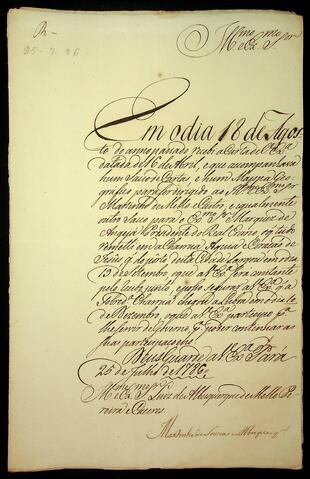 R—
25-7-86
Illmo. e Exmo. Snr.
Em o dia 18 de Agos
to do anno passado recebi a Carta de V. Exa.
datada de 16 de Abril, e que acompanhava
hum Saco de Cartas, e hum Mappa Geo-
grafico para ser dirigido ao Illmo. e Exmo. Snr.
Martinho de Mello e Castro, e igualmente
outro Saco para o Exmo. Snr. Marquez de
Angeja Presidente do Real Erario
remetti em a Charrua Aguia e Coração de
Jesus, q do porto desta Cidade largou em o dia
13 de Setembro, o que a V. Exa. fará constante
pelo incluso, e posso segurar a V. Exa. q a
sobredª Charrua chegou a Lisboa em o dia 10
de Dezembro, o que a V. Exa. participo pª
lhe servir de governo, e poder continuar as
suas participaçoens.
Deus Guarde a V. Exa. Pará
25 de Julho de 1786
Illmo. e Exmo. Snr. Luiz de Albuquerque de Mello Pe-
reira e Caceres
Martinho de Souza e Albuquerque